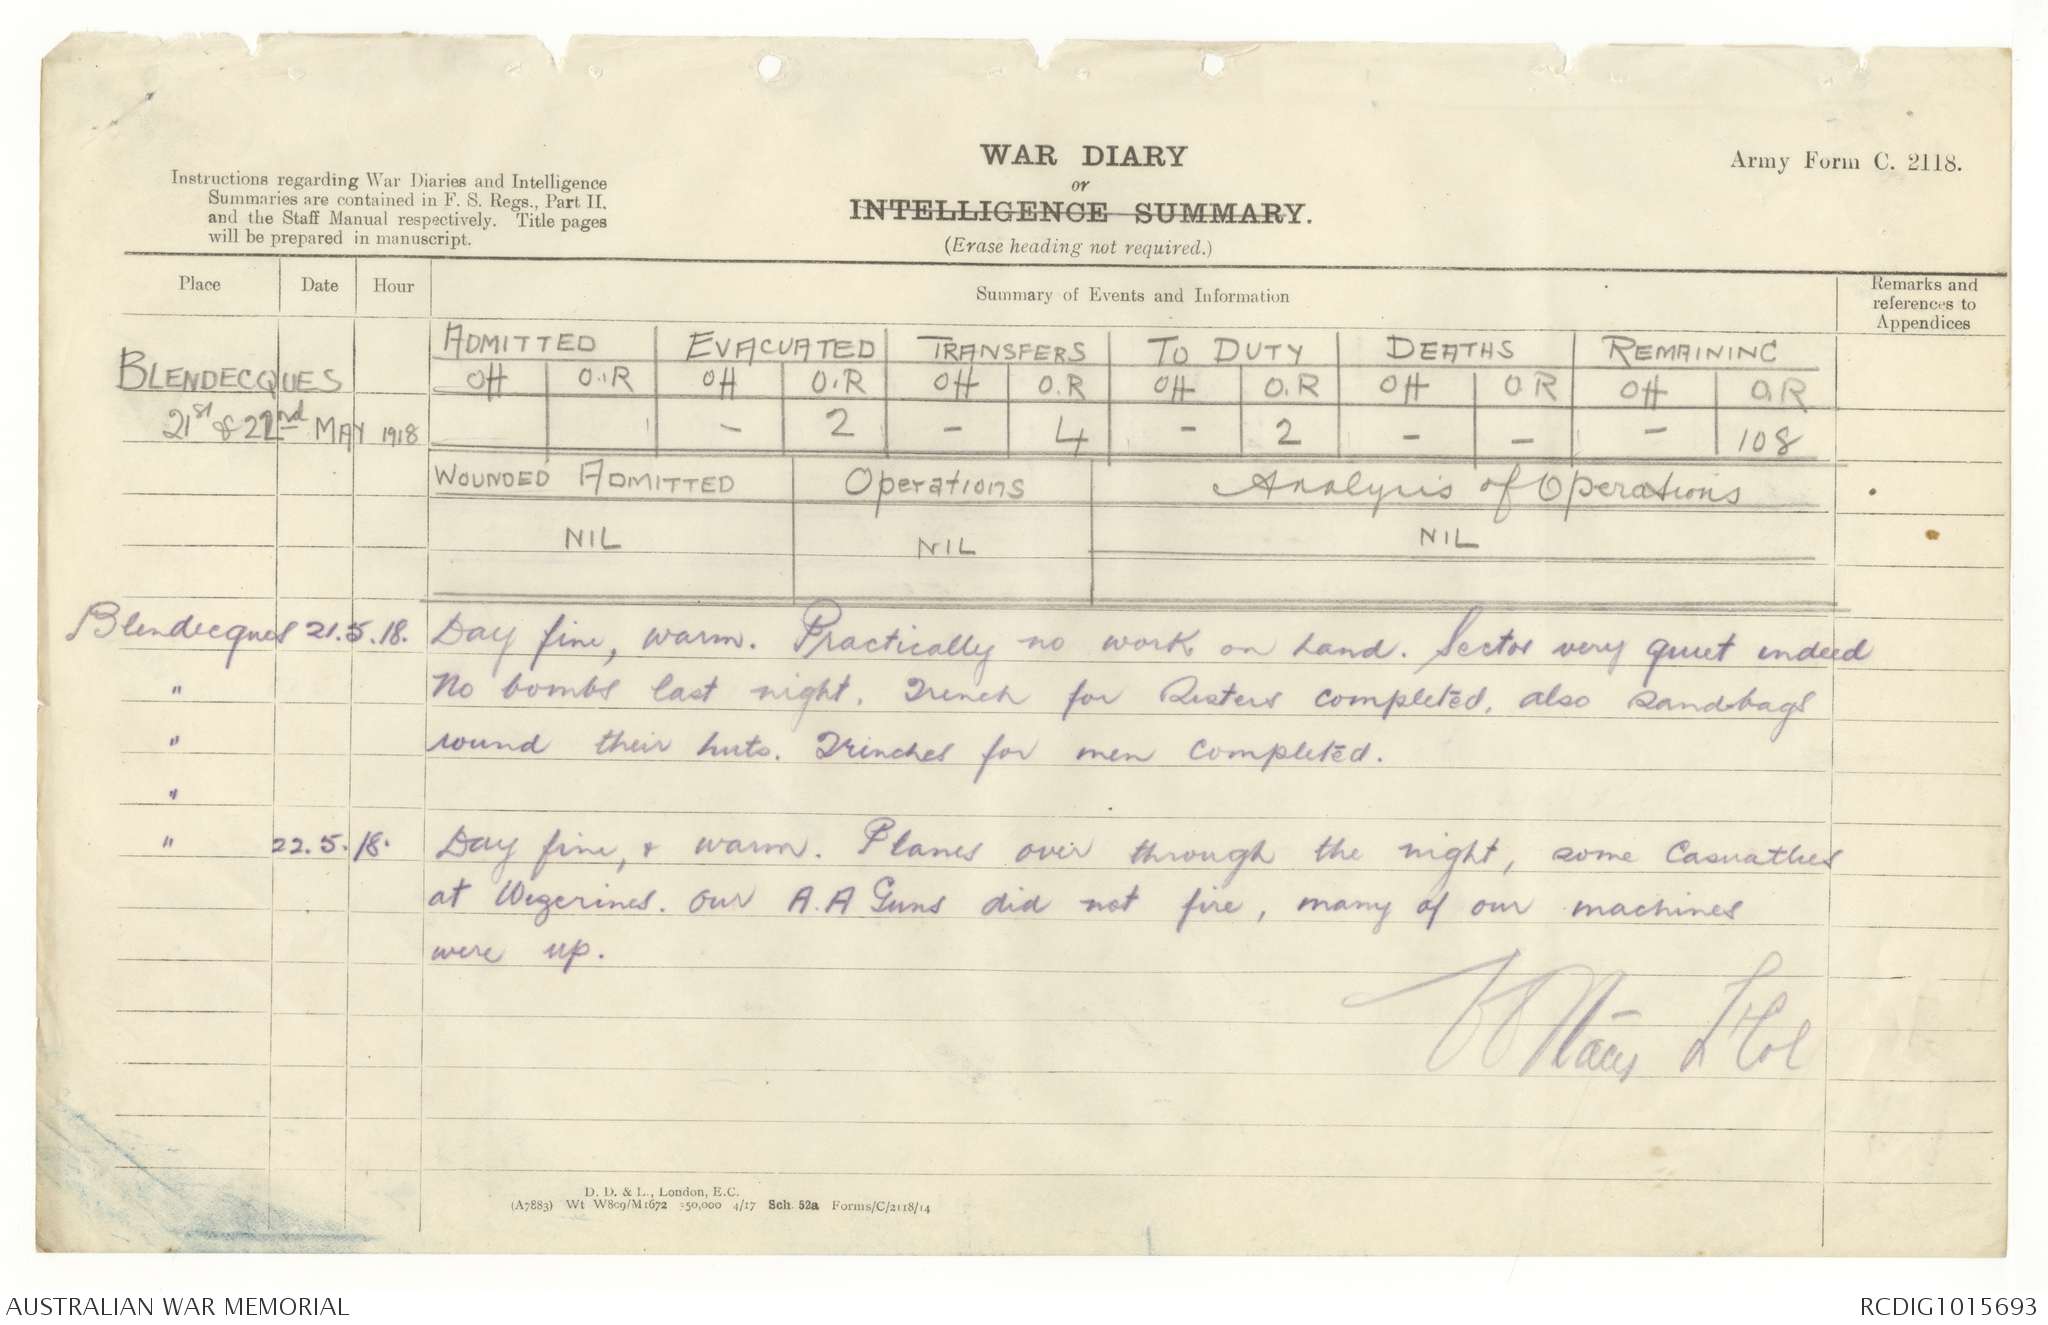 WAR DIARY
or
INTELLIGENCE SUMMARY.
(Erase heading not required.)
Army Form C. 2118.
Instructions regarding War Diaries and Intelligence
Summaries are contained in F. S. Regs., Part II.
and the Staff Manual respectively. Title pages
will be prepared in manuscript.
Place Date Hour Summary of Events and Information Remarks and references to Appendices
ADMITTED EVACUATED TRANSFERS TO DUTY DEATHS REMAINING
BLENDECQUES Off O.R Off O.R Off O.R Off O.R Off O.R Off O.R
21st & 22nd MAY 1918 - 2 - 4 - 2 - - - 108
WOUNDED ADMITTED Operations Analysis of Operations
NIL NIL NIL
Blendecques 21.5.18. Day fine, warm. Practically no work on hand. Sector very quiet indeed
" No bombs last night. Trench for Sisters completed, also sandbags
" round their huts. Trenches for men completed.
"
" 22.5.18. Day fine, & warm. Planes over through the night, some Casualties
at Wizerines. Our A.A Guns did not fire, many of our machines
were up.
Lt Col
D. D. & L., London, E.C.
(A7883) Wt W809/M1672 350,000 4/17 Sch. 52a Forms/C/2118/14
AUSTRALIAN WAR MEMORIAL
RCDIG1015693